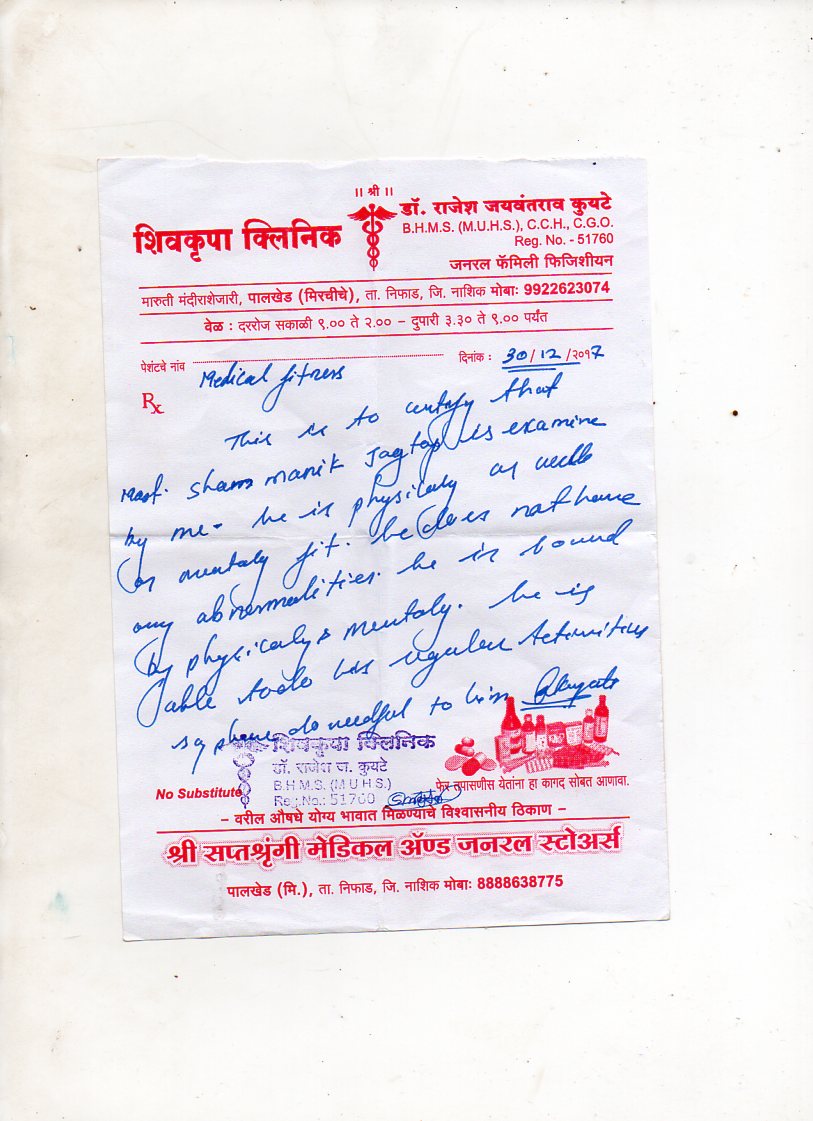 ॥ श्री ॥
शिवकृपा क्लिनिक
डॉ. राजेश जयवंतराव कुयटे
B.H.M.S. (M.U.H.S.), C.C.H., C.G.O.
Reg. No. - 51760
जनरल फॅमिली फिजिशीयन
मारुती मंदीराशेजारी, पालखेड (मिरचीचे), ता. निफाड, जि. नाशिक मोबाः 9922623074
वेळ : दररोज सकाळी ९.०० ते २.०० – दुपारी ३.३० ते ९.०० पर्यंत
पेशंटचे नांव
दिनांक : 30/12/२०१7
Medical fitness
Rx
This is to certify that
Mast. Sham Manik Jagtap is examine
by me. he is physicaly as well
as mentaly fit. he does not have
any abnormalities. he is bound
by physicaly & mentaly. he is
able todo his regular Activities
so please do needful to him
शिवकृपा क्लिनिक
डॉ. राजेश ज. कुयटे
B.H.M.S. (M U H S.)
Reg. No.: 51760
No Substitute
फेर तपासणीस येतांना हा कागद सोबत आणावा.
– वरील औषधे योग्य भावात मिळण्याचे विश्वासनीय ठिकाण –
श्री सप्तश्रृंगी मेडिकल ॲण्ड जनरल स्टोअर्स
पालखेड (मि.), ता. निफाड, जि. नाशिक मोबाः 8888638775